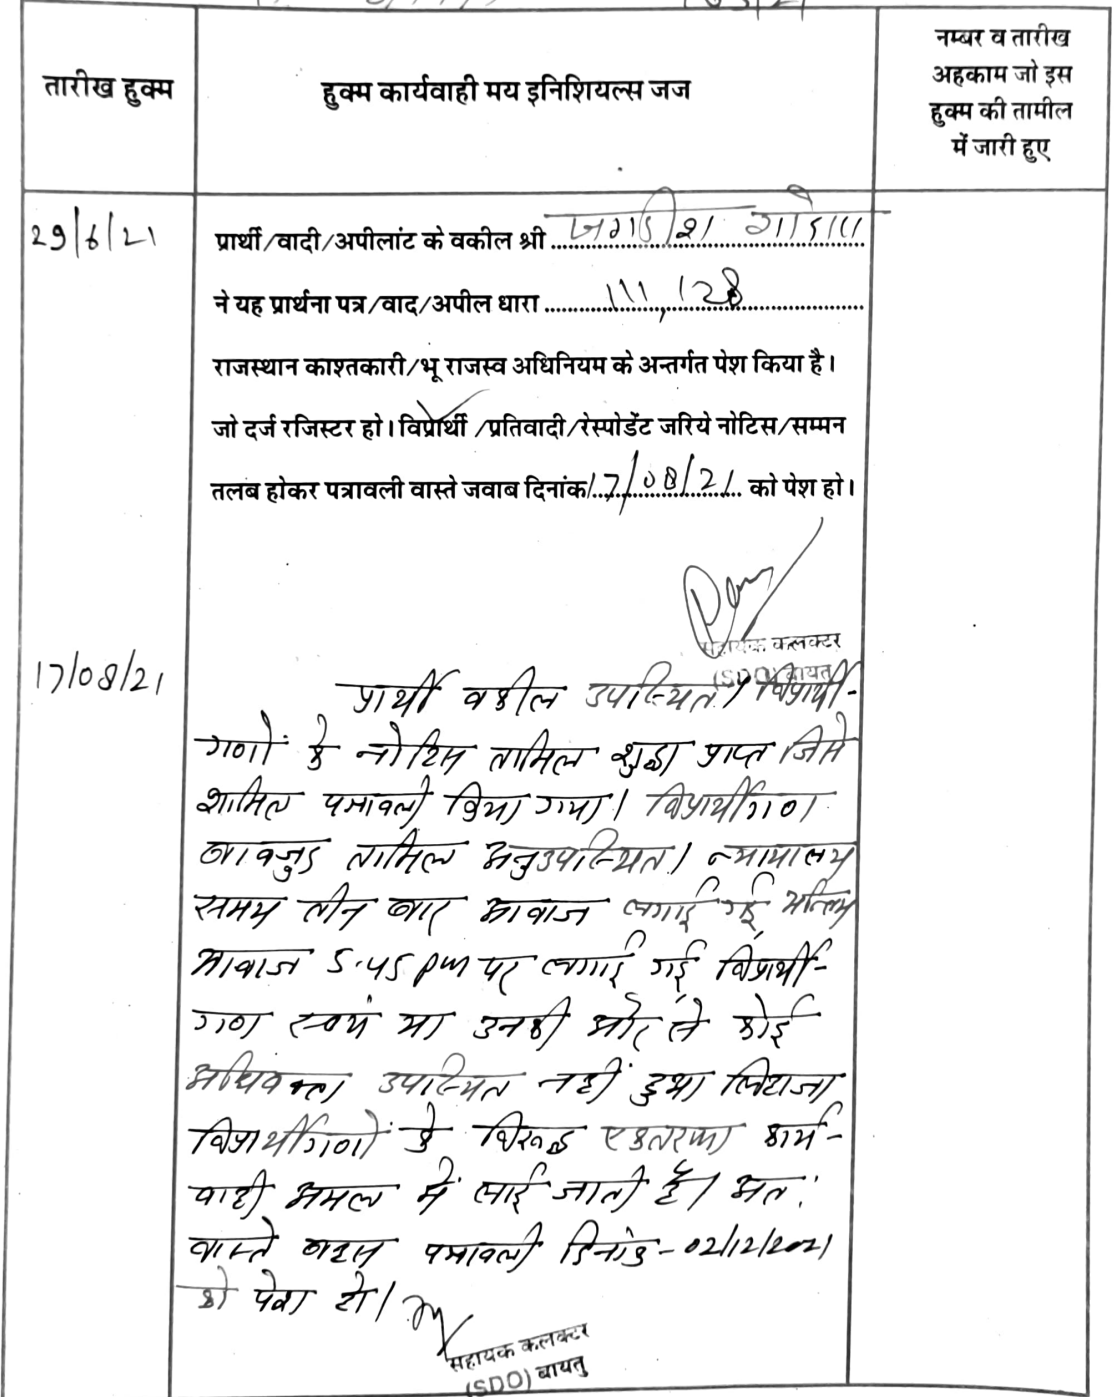 तारीख हुक्म
हुक्म कार्यवाही मय इनिशियल्स जज
नम्बर व तारीख
अहकाम जो इस
हुक्म की तामील
में जारी हुए
29/6/21
प्रार्थी/वादी/अपीलांट के वकील श्री जगदीश गोदारा
ने यह प्रार्थना पत्र/वाद/अपील धारा 111, 128
राजस्थान काश्तकारी/भू राजस्व अधिनियम के अन्तर्गत पेश किया है।
जो दर्ज रजिस्टर हो। विप्रार्थी /प्रतिवादी/रेस्पोडेंट जरिये नोटिस/सम्मन
तलब होकर पत्रावली वास्ते जवाब दिनांक 17/08/21 को पेश हो।
सहायक कलक्टर
(SDO) बायतु
17/08/21
प्रार्थी वकील उपस्थित। विप्रार्थी-
गणों के नोटिस तामिल शुदा प्राप्त जिसे
शामिल पत्रावली किया गया। विप्रार्थीगण
बावजुद तामिल अनुउपस्थित। न्यायालय
समय तीन बार आवाज लगाई गई, अन्तिम
आवाज 5.45 pm पर लगाई गई, विप्रार्थी-
गण स्वयं या उनकी ओर से कोई
अधिवक्ता उपस्थित नहीं हुआ लिहाजा
विप्रार्थीगणों के विरूद्ध एकतरफा कार्य-
वाही अमल में लाई जाती है। अत:
वास्ते बहस पत्रावली दिनांक - 02/12/2021
को पेश हो।
सहायक कलक्टर
(SDO) बायतु